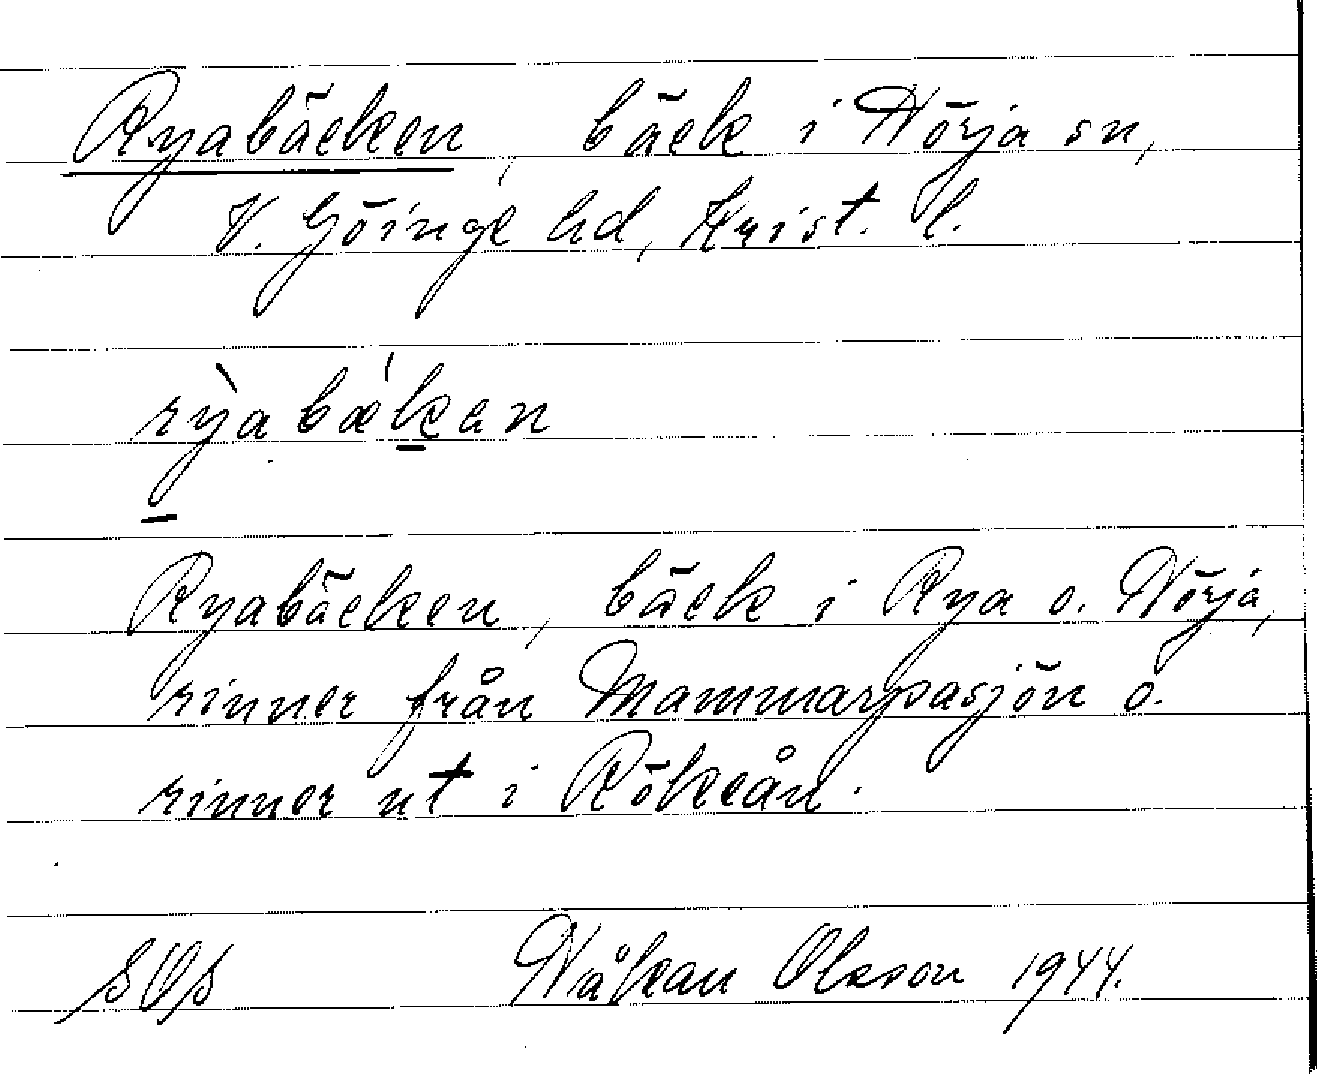 Ryabäcken, bäck i Hörja sn,
V. Göinge hd, Krist. l.
rỳabǽkan
Ryabäcken, bäck i Rya o. Hörja,
rinner från Mammarpasjön o.
rinner ut i Rökeån.
SOS Håkan Olsson 1944.